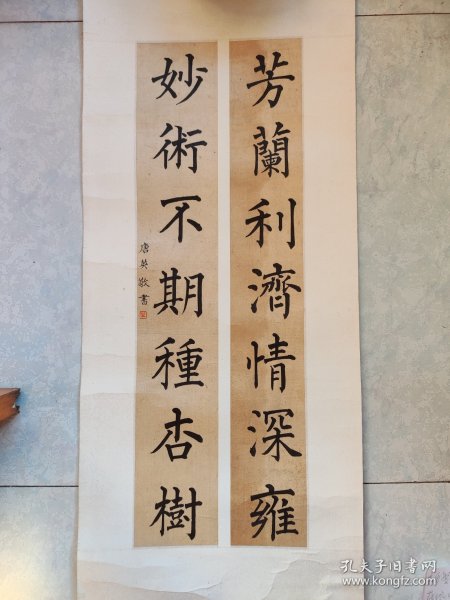 芳蘭利濟情深雍
妙術不期種杏樹
唐英敬書
孔夫子旧书网
www.kongfz.com